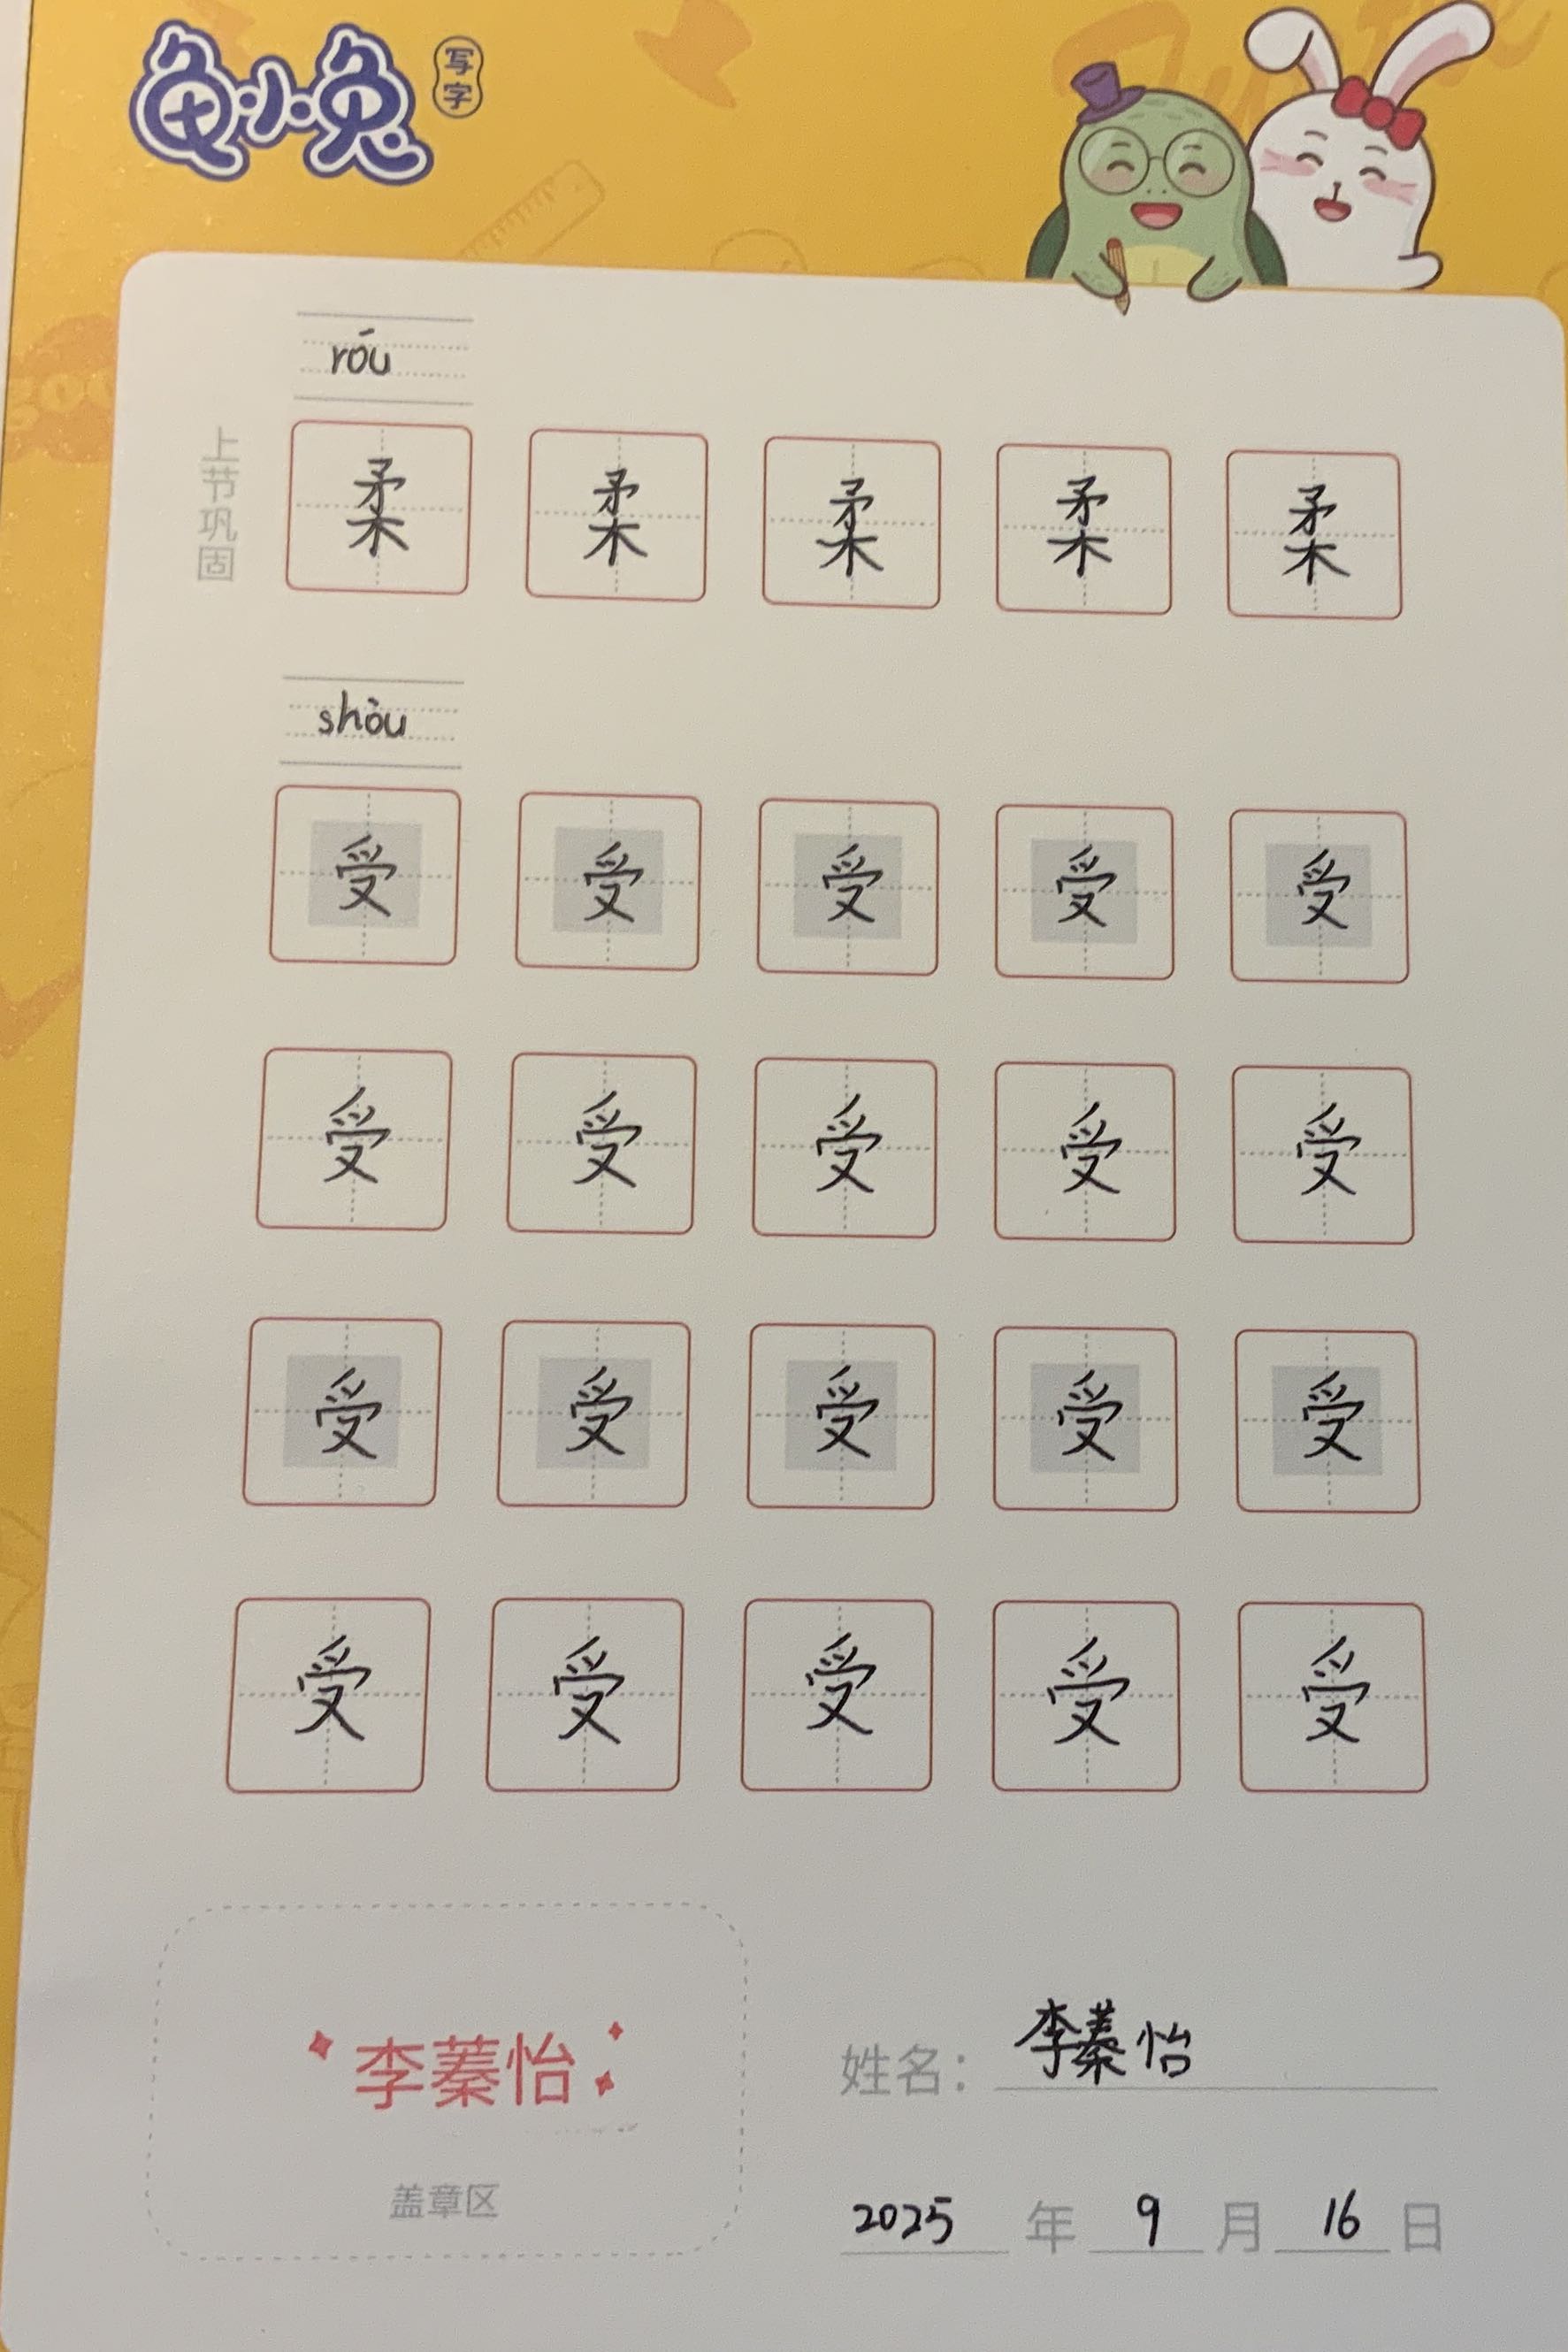 龟小兔 写字
róu
上节巩固
柔 柔 柔 柔 柔
shòu
受 受 受 受 受
受 受 受 受 受
受 受 受 受 受
受 受 受 受 受
李蓁怡
盖章区
姓名：李蓁怡
2025 年 9 月 16 日